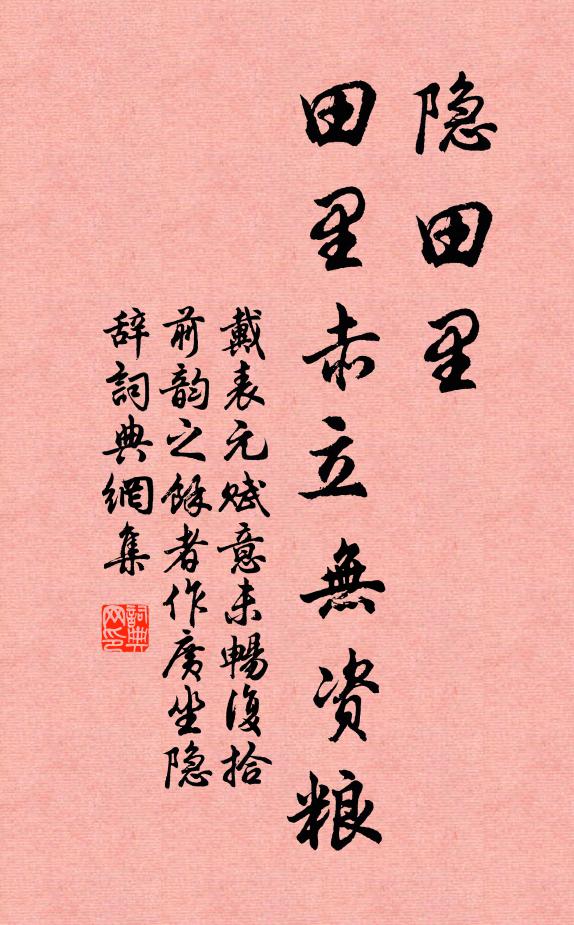 隐田里
田里赤立無资粮
戴表元赋意未暢復拾
前韵之餘者作廣坐隐
辞詞典網集
詞典网印